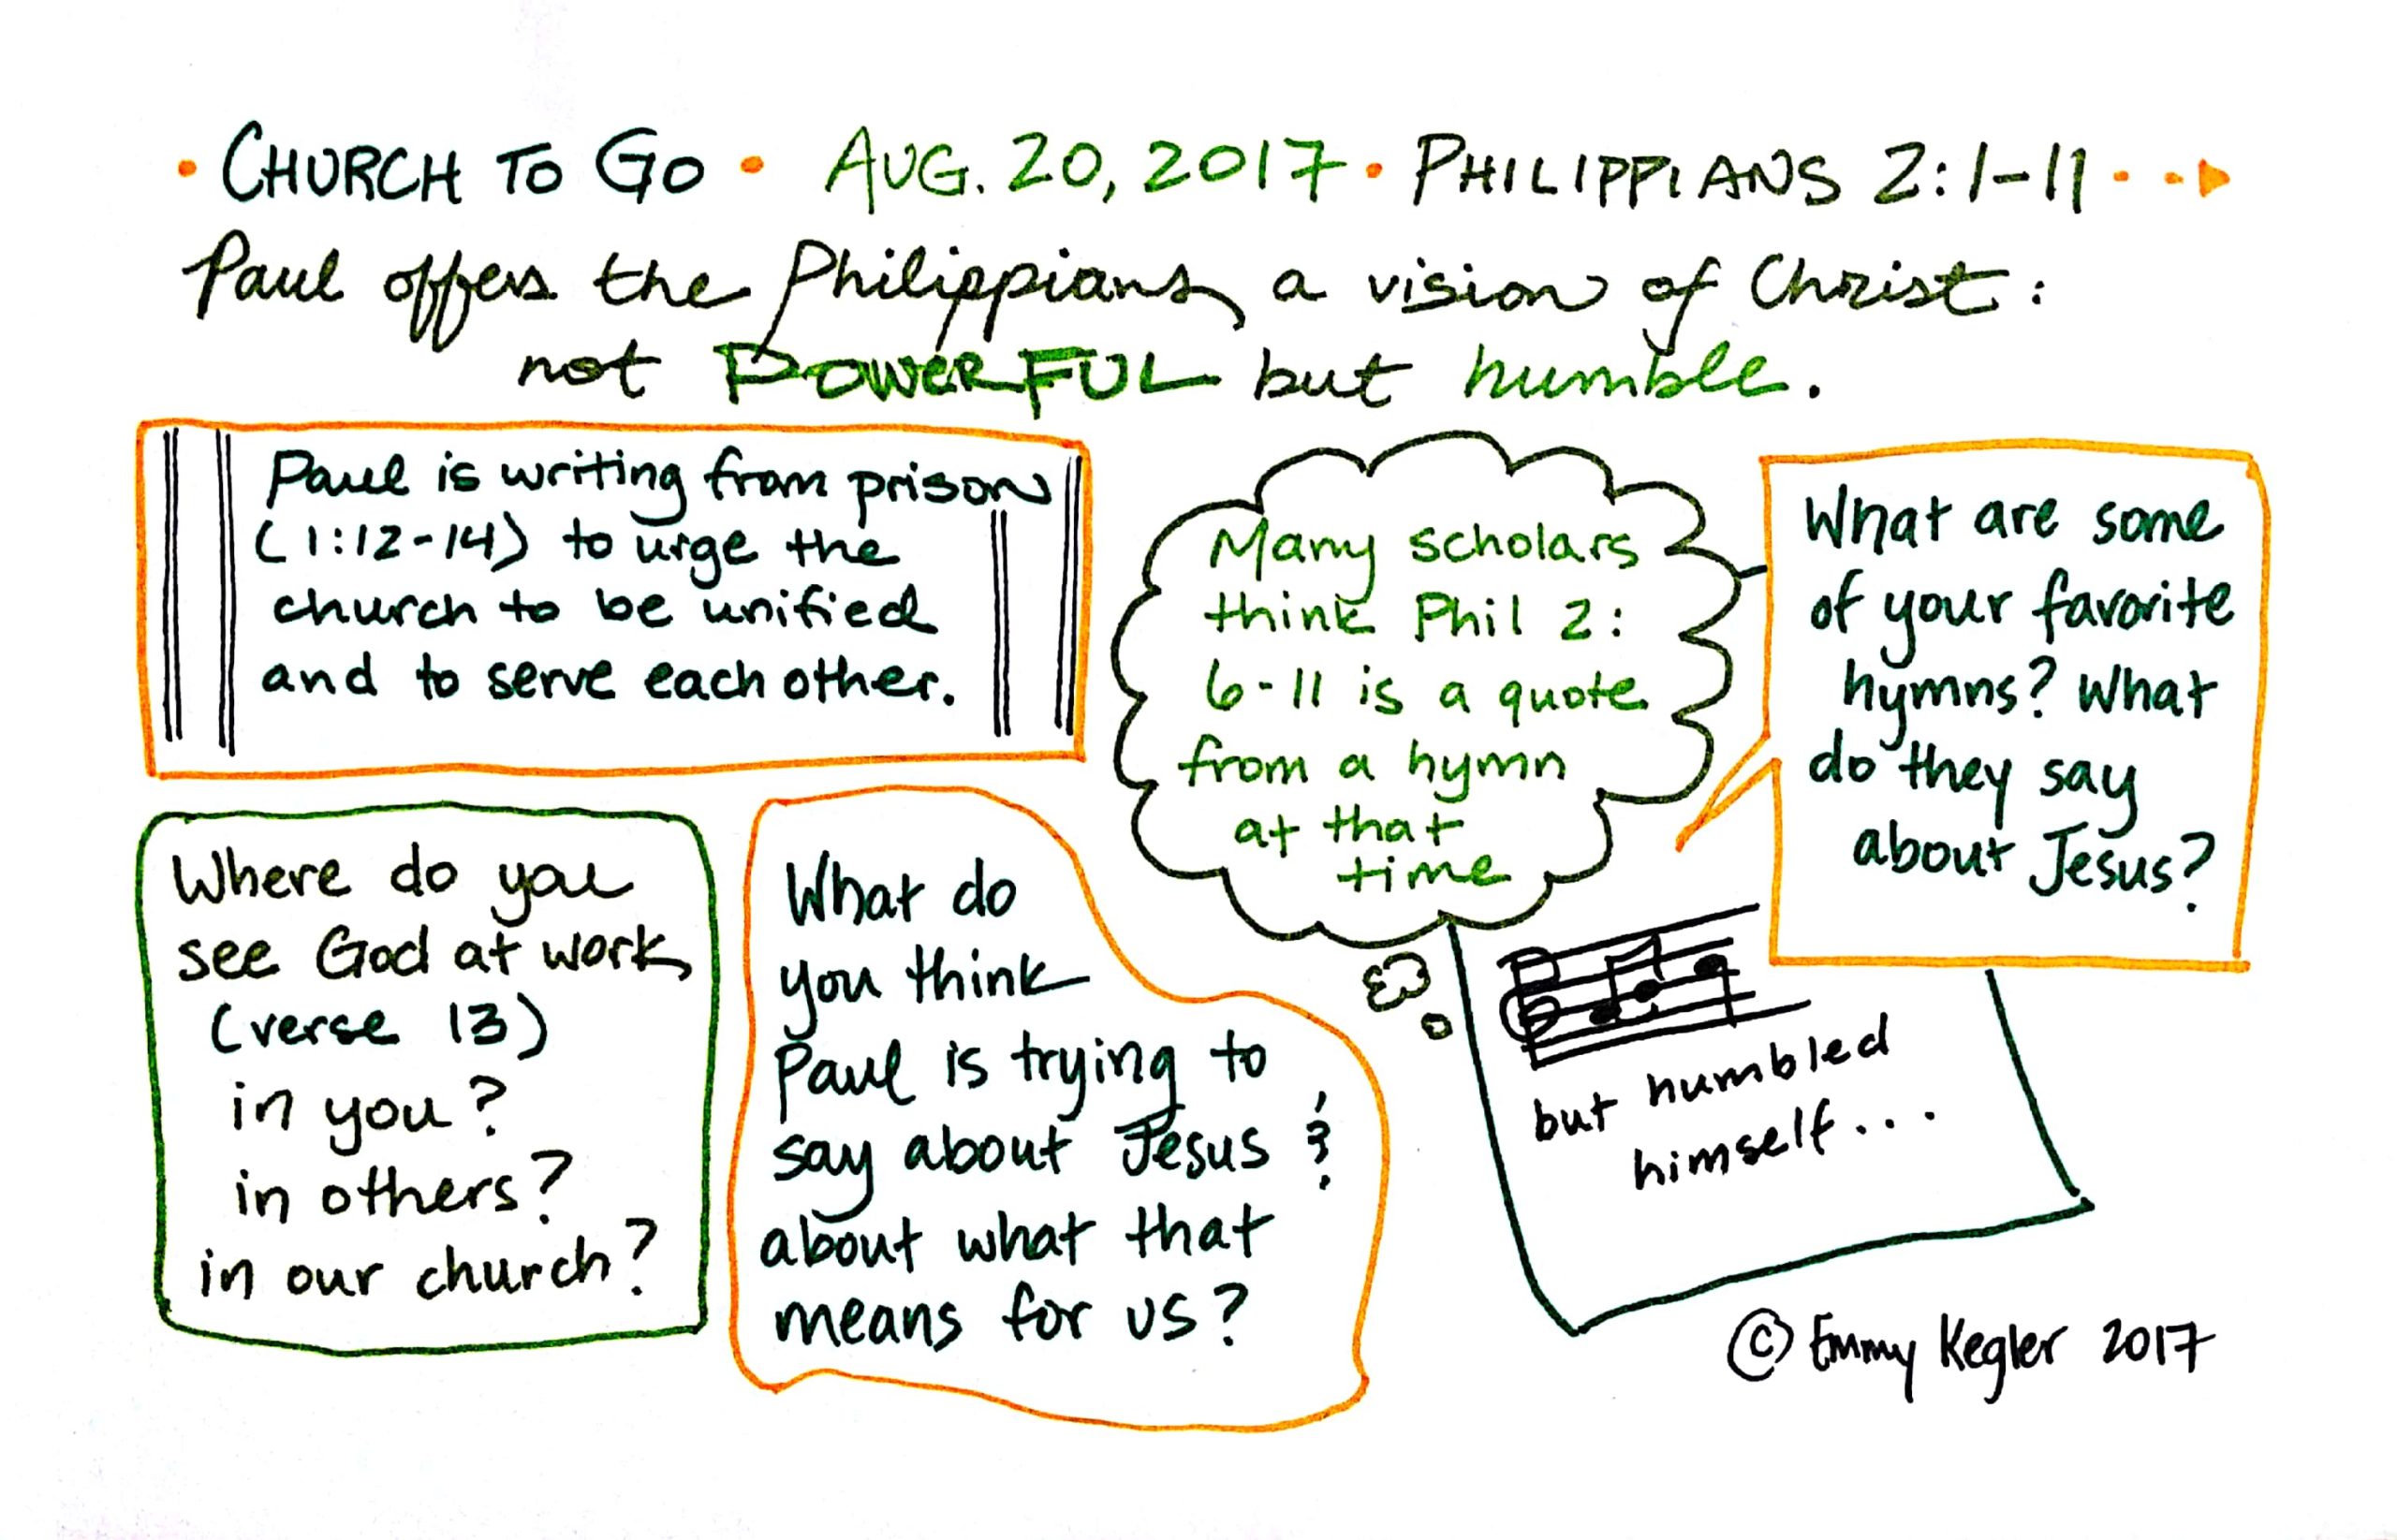 • CHURCH TO GO • AUG. 20, 2017 • PHILIPPIANS 2:1-11
Paul offers the Philippians a vision of Christ:
not POWERFUL but humble.
Paul is writing from prison
(1:12-14) to urge the
church to be unified
and to serve each other.
Many scholars
think Phil 2:
6-11 is a quote
from a hymn
at that
time
What are some
of your favorite
hymns? What
do they say
about Jesus?
Where do you
see God at work
(verse 13)
in you?
in others?
in our church?
What do
you think
Paul is trying to
say about Jesus &
about what that
means for us?
but humbled
himself...
© Emmy Kegler 2017